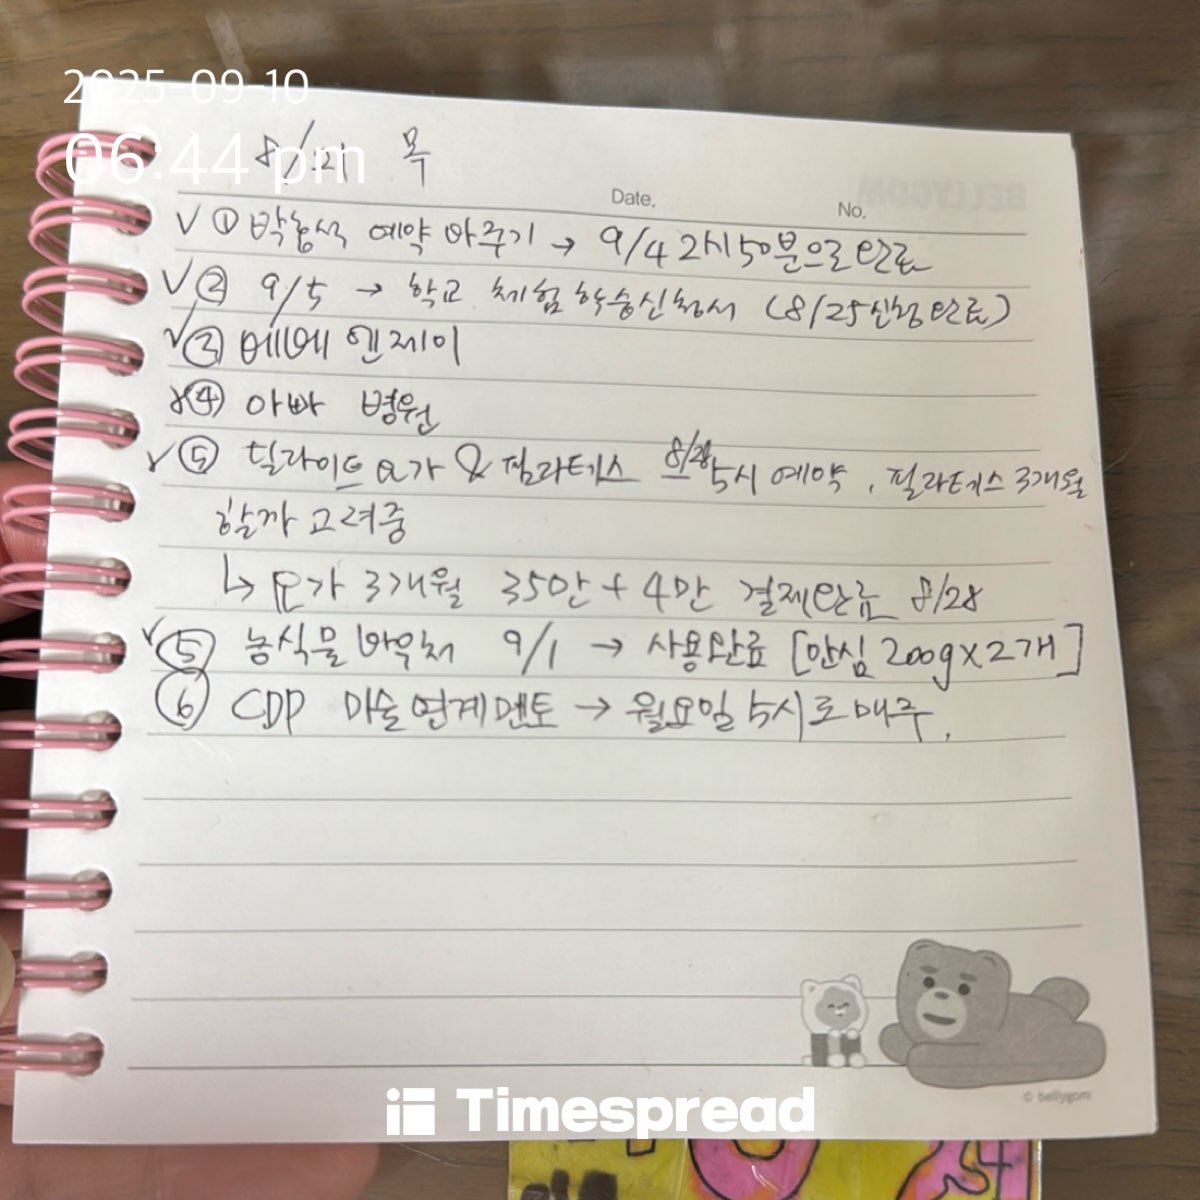 2025-09-10
06:44 pm
8/21 목
Date.
No.
✓ ① 박농식 예약 바꾸기 → 9/4 2시50분으로 완료
✓ ② 9/5 → 학교 체험학습신청서 (8/25신청완료)
✓ ③ 엔제이
④ 아빠 병원
✓ ⑤ 필라이트 요가 & 필라테스 8/28 5시 예약, 필라테스 3개월
할까 고려중
↳ 요가 3개월 35만+4만 결제완료 8/28
✓ ⑤ 농식물 바우처 9/1 → 사용완료 [안심 200g×2개]
⑥ CDP 미술연계멘토 → 월요일 5시로 매주.
© bellygom
Timespread